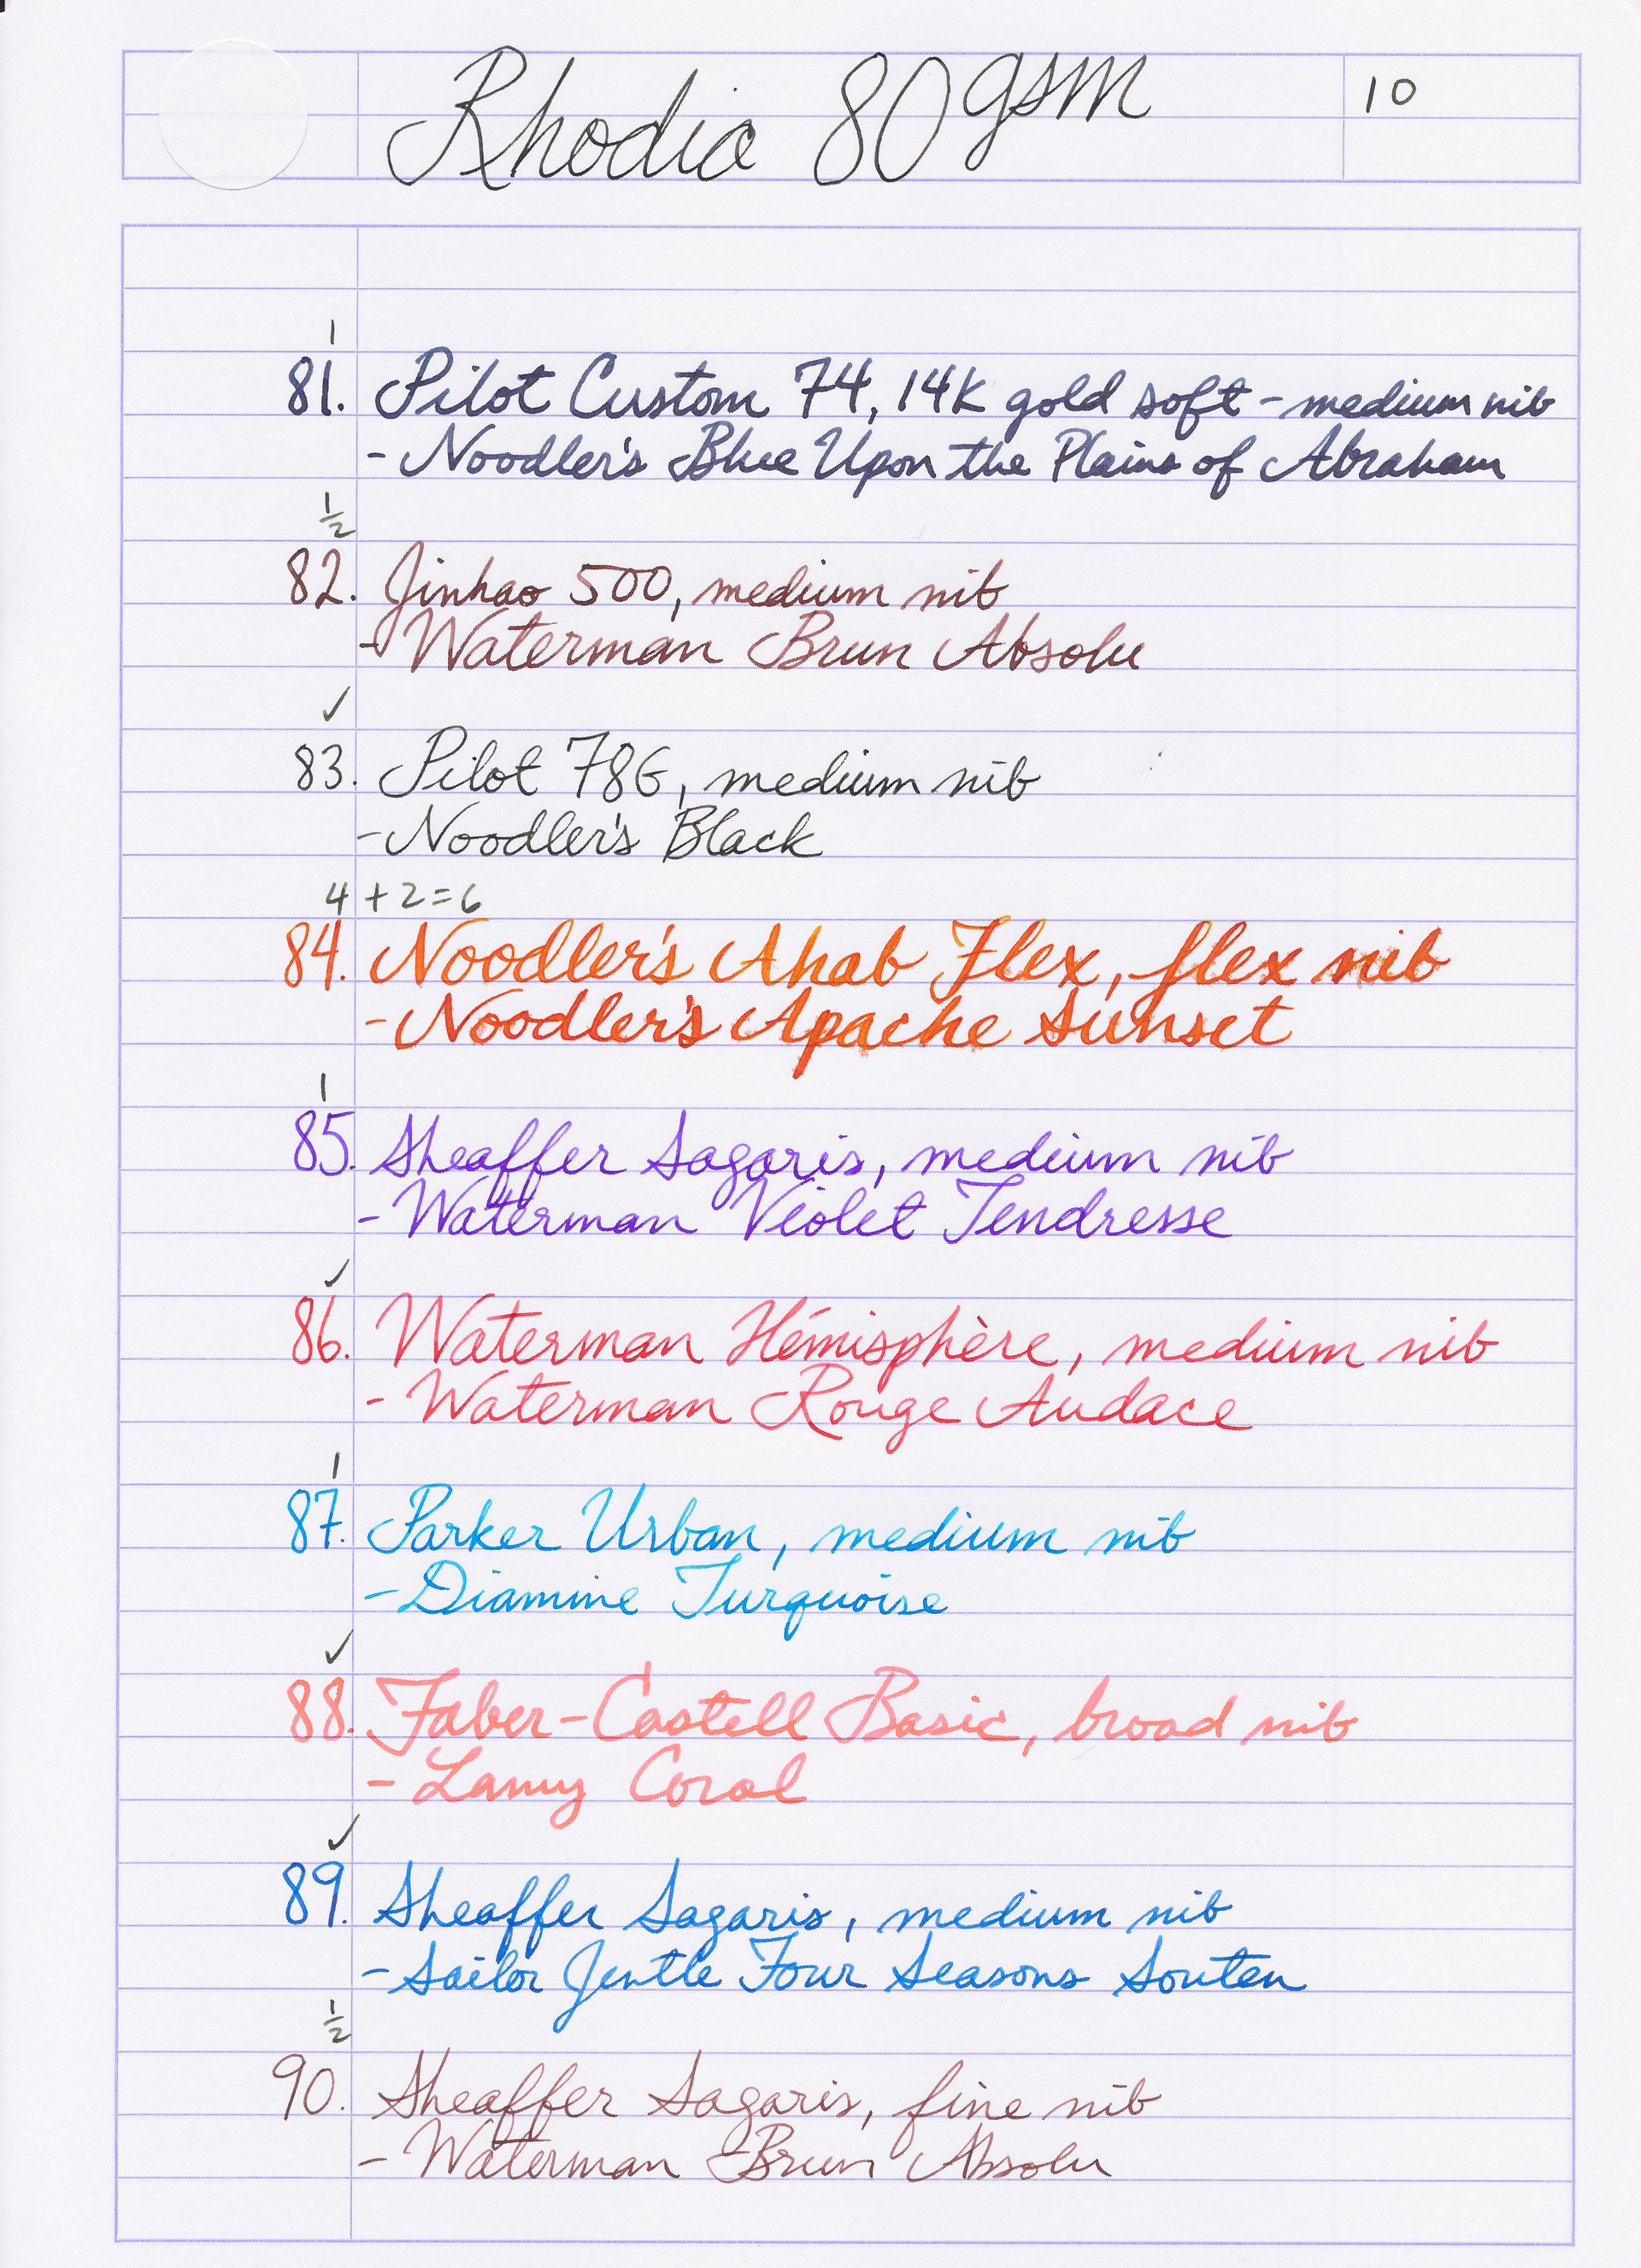 Rhodia 80gsm
10
1
81. Pilot Custom 74, 14K gold soft-medium nib
- Noodler's Blue Upon the Plains of Abraham
1/2
82. Jinhao 500, medium nib
- Waterman Brun Absolu
✓
83. Pilot 78G, medium nib
- Noodler's Black
4 + 2 = 6
84. Noodler's Ahab Flex, flex nib
- Noodler's Apache Sunset
1
85. Sheaffer Sagaris, medium nib
- Waterman Violet Tendresse
✓
86. Waterman Hémisphère, medium nib
- Waterman Rouge Audace
1
87. Parker Urban, medium nib
- Diamine Turquoise
✓
88. Faber-Castell Basic, broad nib
- Lamy Coral
✓
89. Sheaffer Sagaris, medium nib
- Sailor Jentle Four Seasons Souten
1/2
90. Sheaffer Sagaris, fine nib
- Waterman Brun Absolu